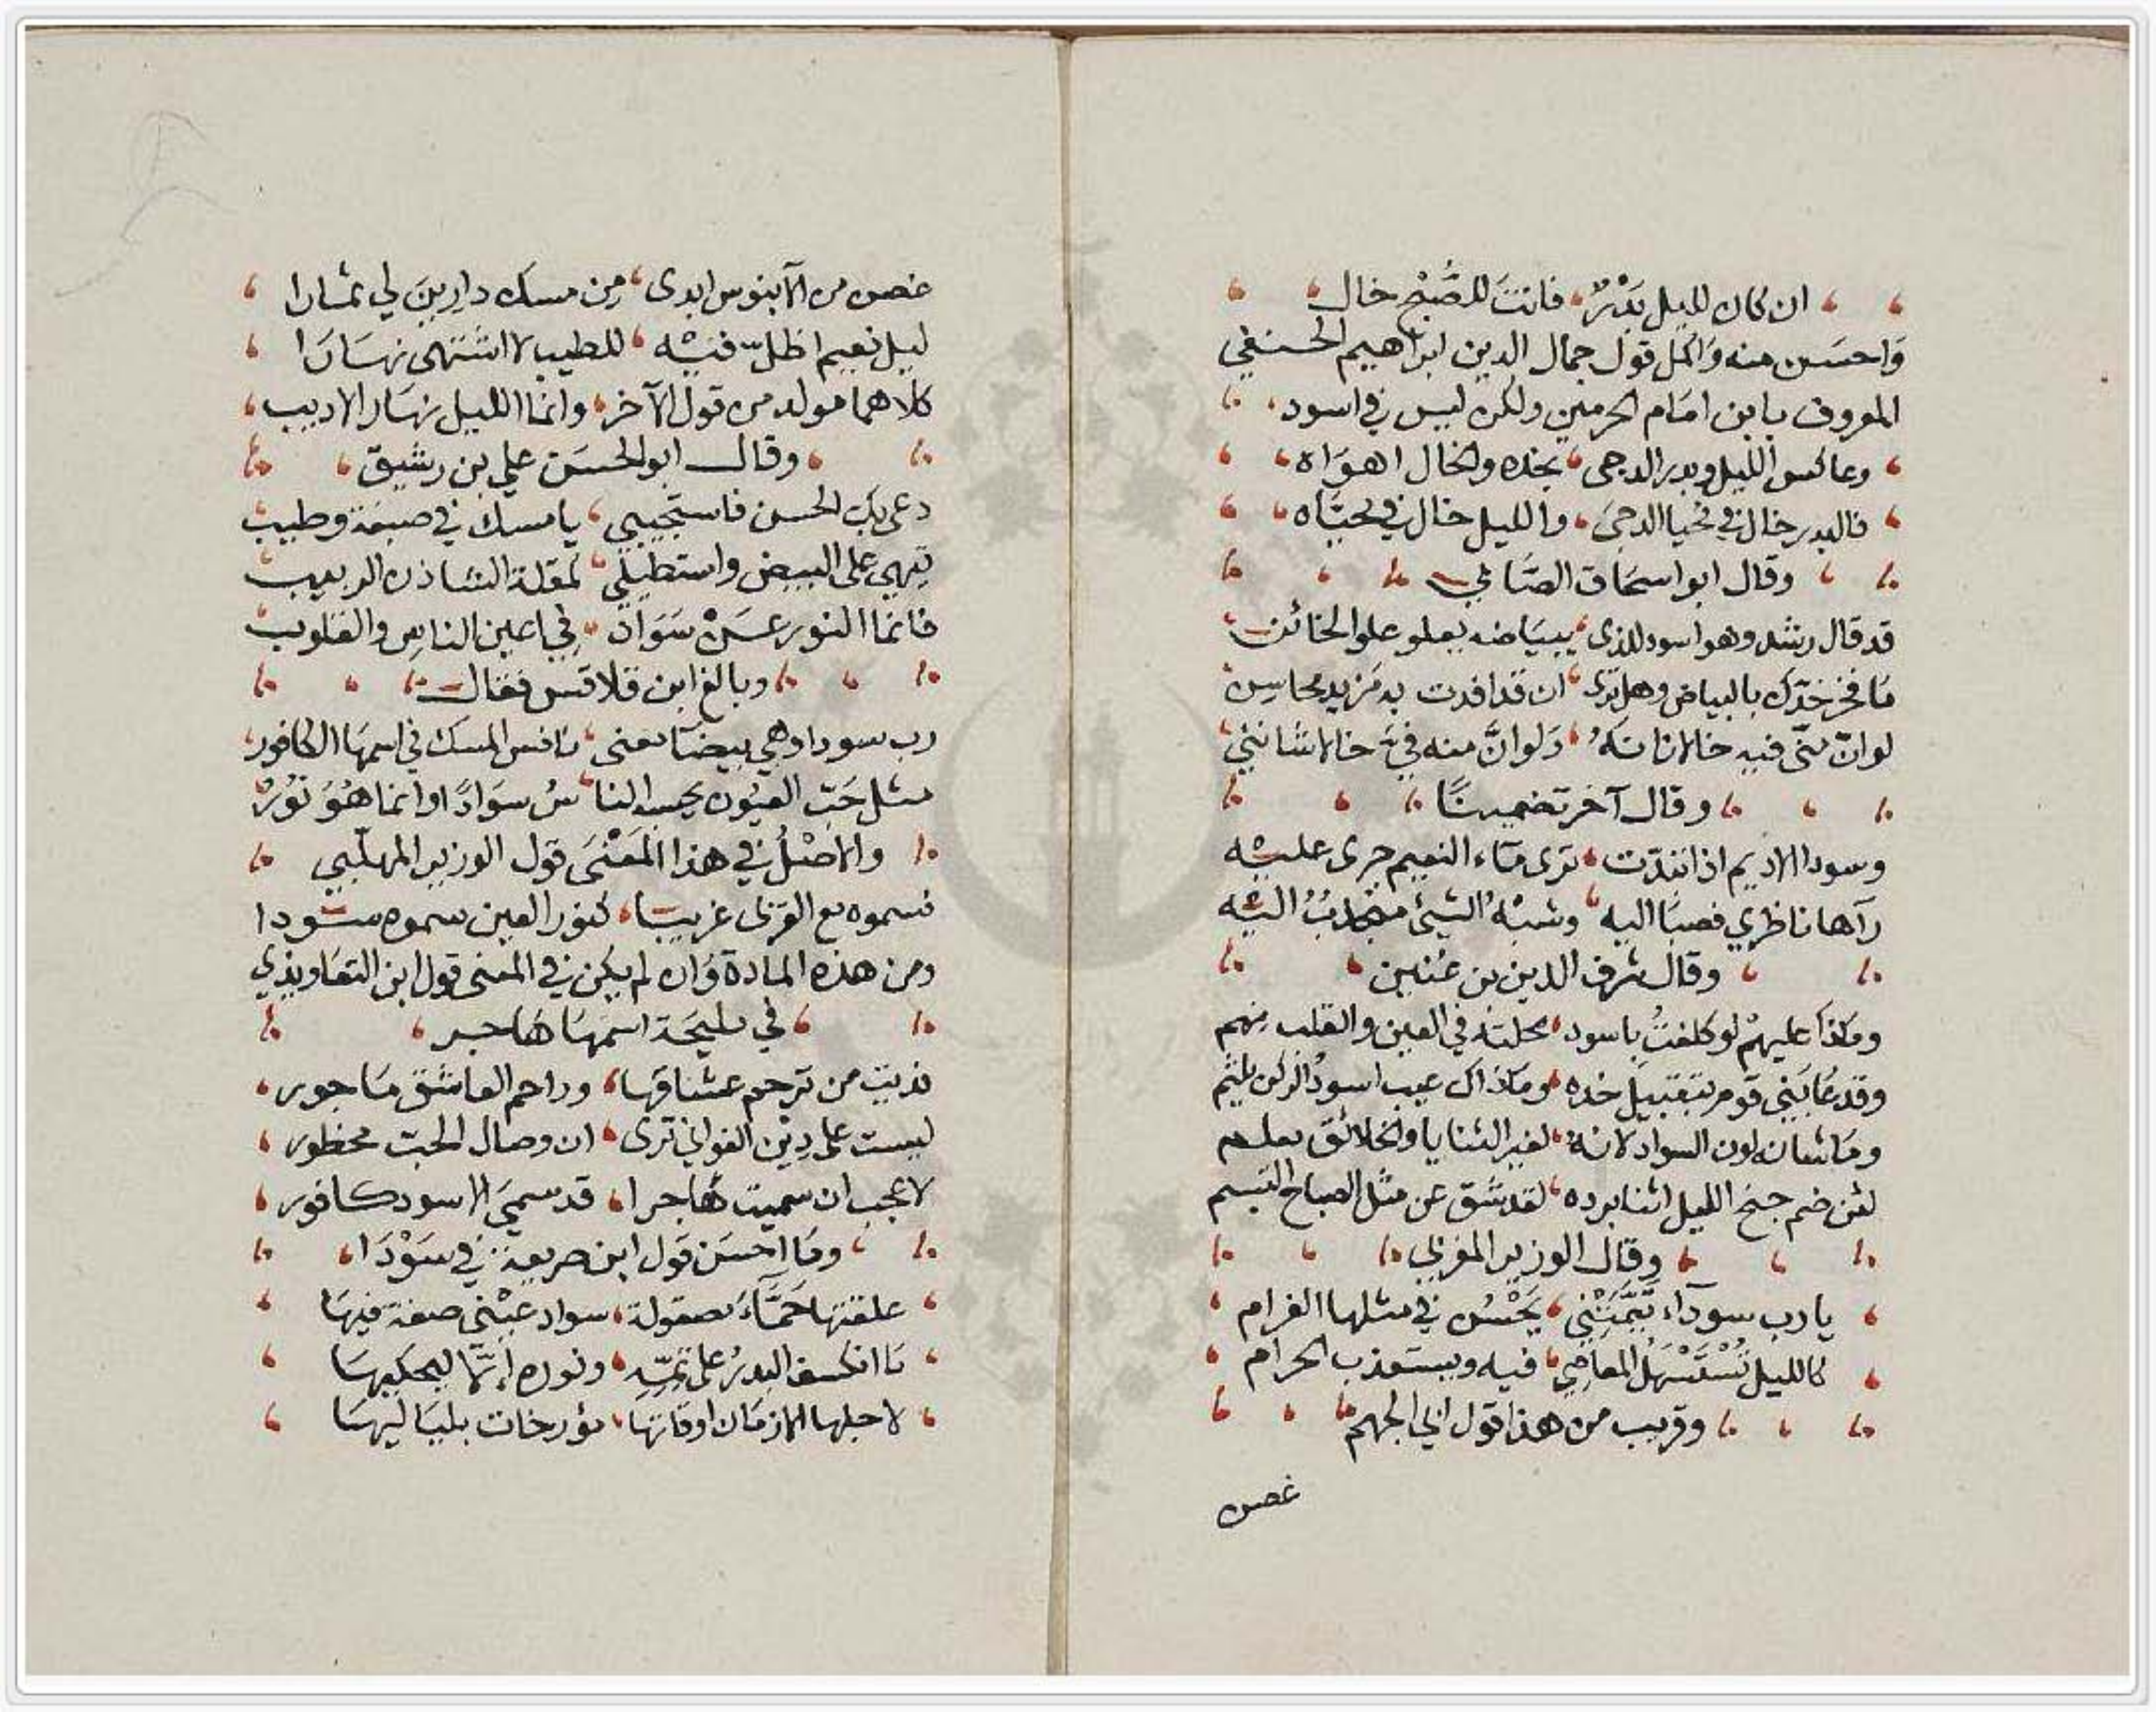 ان كان لليل بَدْرٌ، فانتَ للصُّبْحِ خال
وَاحسَن منه وَاكمل قول جمال الدين ابراهيم الحنفي
المعروف بابن امَام الحرمين ولكن ليس في اسود
وعاكس الليل وبدر الدجى، بخده والخال اهوَاه
فالبدر خال في محيا الدجىَ، والليل خال في محيَّاه
وقال ابو اسحَاق الصَّابي
قد قال رشد وهو اسود للذى، ببيَاضه يعلو علو الخائن
مَا فخر خدّك بالبياض وهل ترى، ان قد افدت به مَزيد محاسِن
لوانّ منّى فيه خالا زانَهُ، وَلوانَّ منه فيَّ خالا شانني
وقال آخر تضمينًا
وسودا الاديم اذا تبدّت، ترى مَاء النعيم جرى عليْه
رآها ناظري فصبَا اليه، وشبْهُ الشيئ منجذبُ اليْه
وقال شرف الدين بن عُنين
وماذا عليهمْ لو كلفتُ باسود، محلته في العين والقلب مِنهم
وقد عَابَني قوم بتقبيل خده، ومَا ذاك عيب اسودُ الركن يلثم
ومَا شانه لون السواد لانهُ، لغير الثنايا والخلائق معلم
لئن ضم جنح الليل اثنا برده، لقد شَقّ عن مثل الصباح التبسم
وقال الوزير المغربي
يا رب سودآء تَيَّمَتْنِي، يَحْسُن في مثلها الغرام
كالليل تُسْتَسْهَلُ المعاصِي، فيه ويستعذب الحرام
وقريب من هذا قول ابي الجهم
غصن
غصن من الآبنوس ابدى، مِن مسك دارِينَ لي ثمارا
ليل نعيم اظلّ فيْه، للطيب لا اشتهى نهَارَا
كلاهما مولد من قول الآخر، وانما الليل نهَار الاديب
وقال ابو الحسَن علي بن رشيق
دعى بكِ الحسن فاستجيبي، يا مسك في صبغة وطيب
تِيهي على البيض واستطيلي، لمقلة الشاذن الربيب
فانما النور عسَنْ سَوَاد، في اعين الناس والقلوب
وبالغ ابن قلاقس فقال
رب سودا وهي بيضآ معنى، نافس المسك في اسمهَا الكافور
مثل حَبّ العيُون يحسبه النا، سُ سوَادًا وانما هُوَ نورُ
والاصْلُ في هذا المَعْنَى قول الوزير المهلّبي
فسموه مع القربى غريبًا، كنور العين سموه سَودا
ومن هذه المادة وَان لم يكن في المعنى قول ابن التعَاويذي
في مليحَة اسمهَا هَاجر
فديت من ترحم عشاقهَا، وراحم العاشق مَاجور
ليست على دِيْن الغواني ترى، ان وصال الحبّ محظور
لا عجب ان سميت هَاجرا، قد سمىَ الاسود كافور
ومَا احسَن قول ابن صريعة في سَوْدَا
علقتها حَمَّآءَ مصقولة، سواد عيْني صبغة فيهَا
مَا انكسف البدرُ على تِمّهِ، ونوره إنّمَا ليحكيهَا
لاجلها الازمَان اوقاتهَا، مؤرخات بليَاليهَا